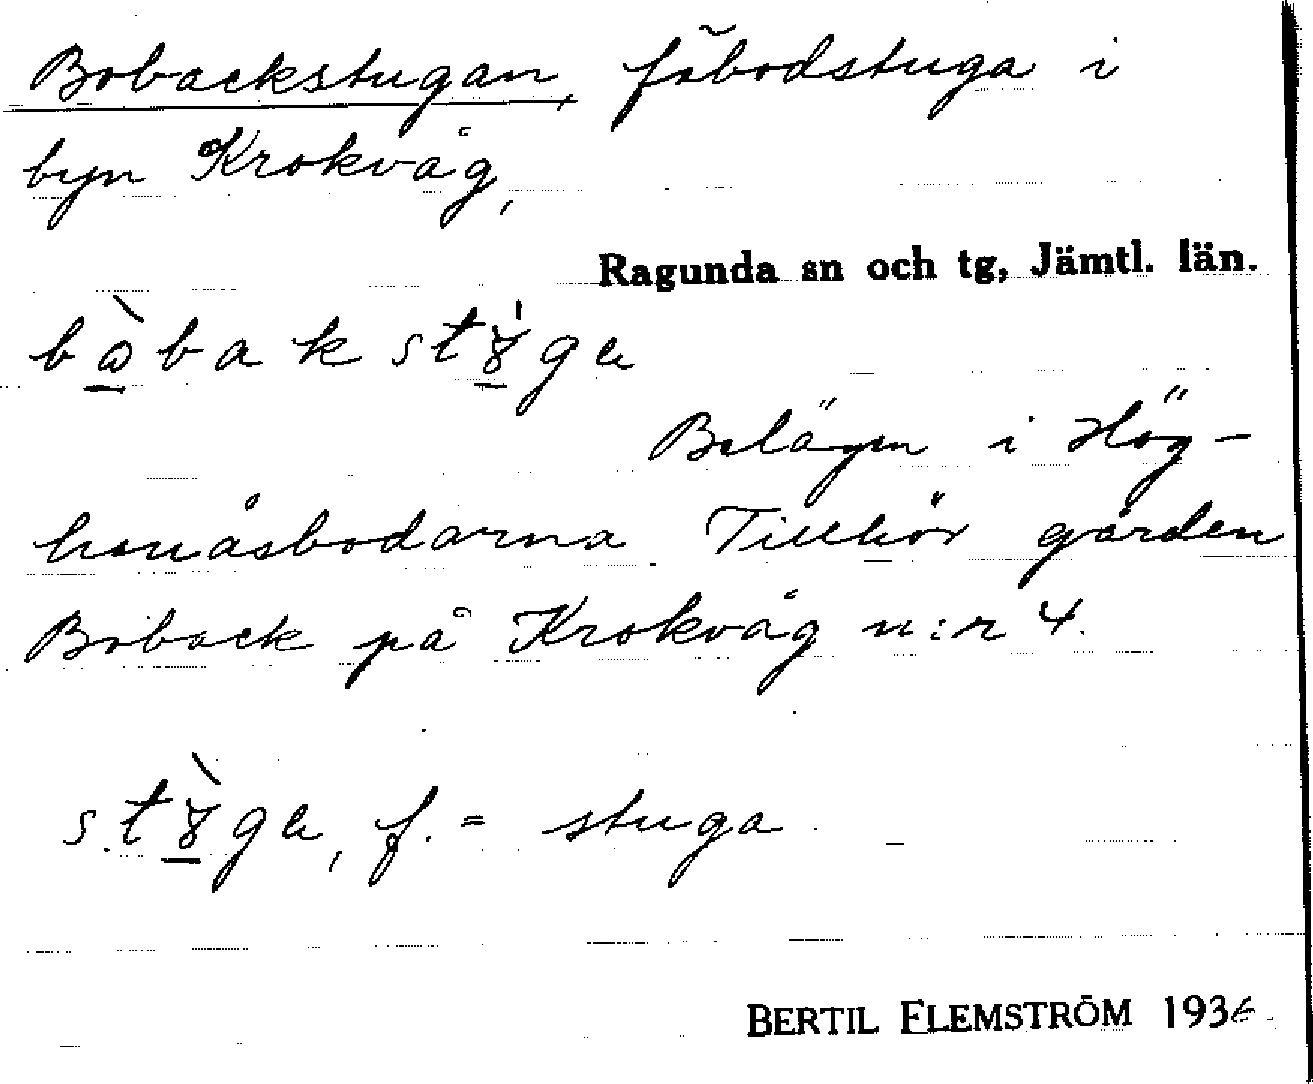 Bobackstugan, fäbodstuga i
byn Krokvåg,
Ragunda sn och tg, Jämtl. län.
Belägen i Hög-
bodarna Tillhör gården
Boback på Krokvåg n:r 4.
f. = stuga
BERTIL FLEMSTRÖM 1936